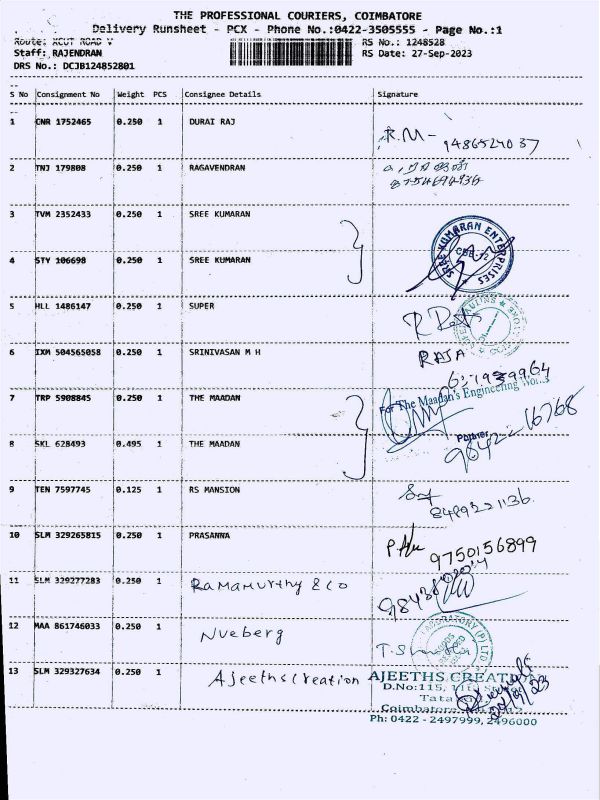 THE PROFESSIONAL COURIERS, COIMBATORE
Delivery Runsheet - PCX - Phone No.:0422-3505555 - Page No.:1
Route: XCUT ROAD V
RS No.: 1248528
Staff: RAJENDRAN
RS Date: 27-Sep-2023
DRS No.: DCJB124852801
S No Consignment No Weight PCS Consignee Details Signature
1 CNR 1752465 0.250 1 DURAI RAJ
R.M- 9486524037
2 TNJ 179808 0.250 1 RAGAVENDRAN
8754694936
3 TVM 2352433 0.250 1 SREE KUMARAN
SREE KUMARAN ENTERPRISES
4 STY 106698 0.250 1 SREE KUMARAN
5 HLL 1486147 0.250 1 SUPER
6 IXM 504565058 0.250 1 SRINIVASAN M H
RAJA
7 TRP 5908845 0.250 1 THE MAADAN
For The Maadan's Engineering Works
Partner
9842216768
8 SKL 628493 0.495 1 THE MAADAN
9 TEN 7597745 0.125 1 RS MANSION
8489221136
10 SLM 329265815 0.250 1 PRASANNA
9750156899
11 SLM 329277283 0.250 1 Ramamurthy & Co
12 MAA 861746033 0.250 1 Nueberg
13 SLM 329327634 0.250 1 Ajeethscreation
AJEETHS CREATION
D.No:115,
Tata
Coimbatore
27/9/23
Ph: 0422 - 2497999, 2496000